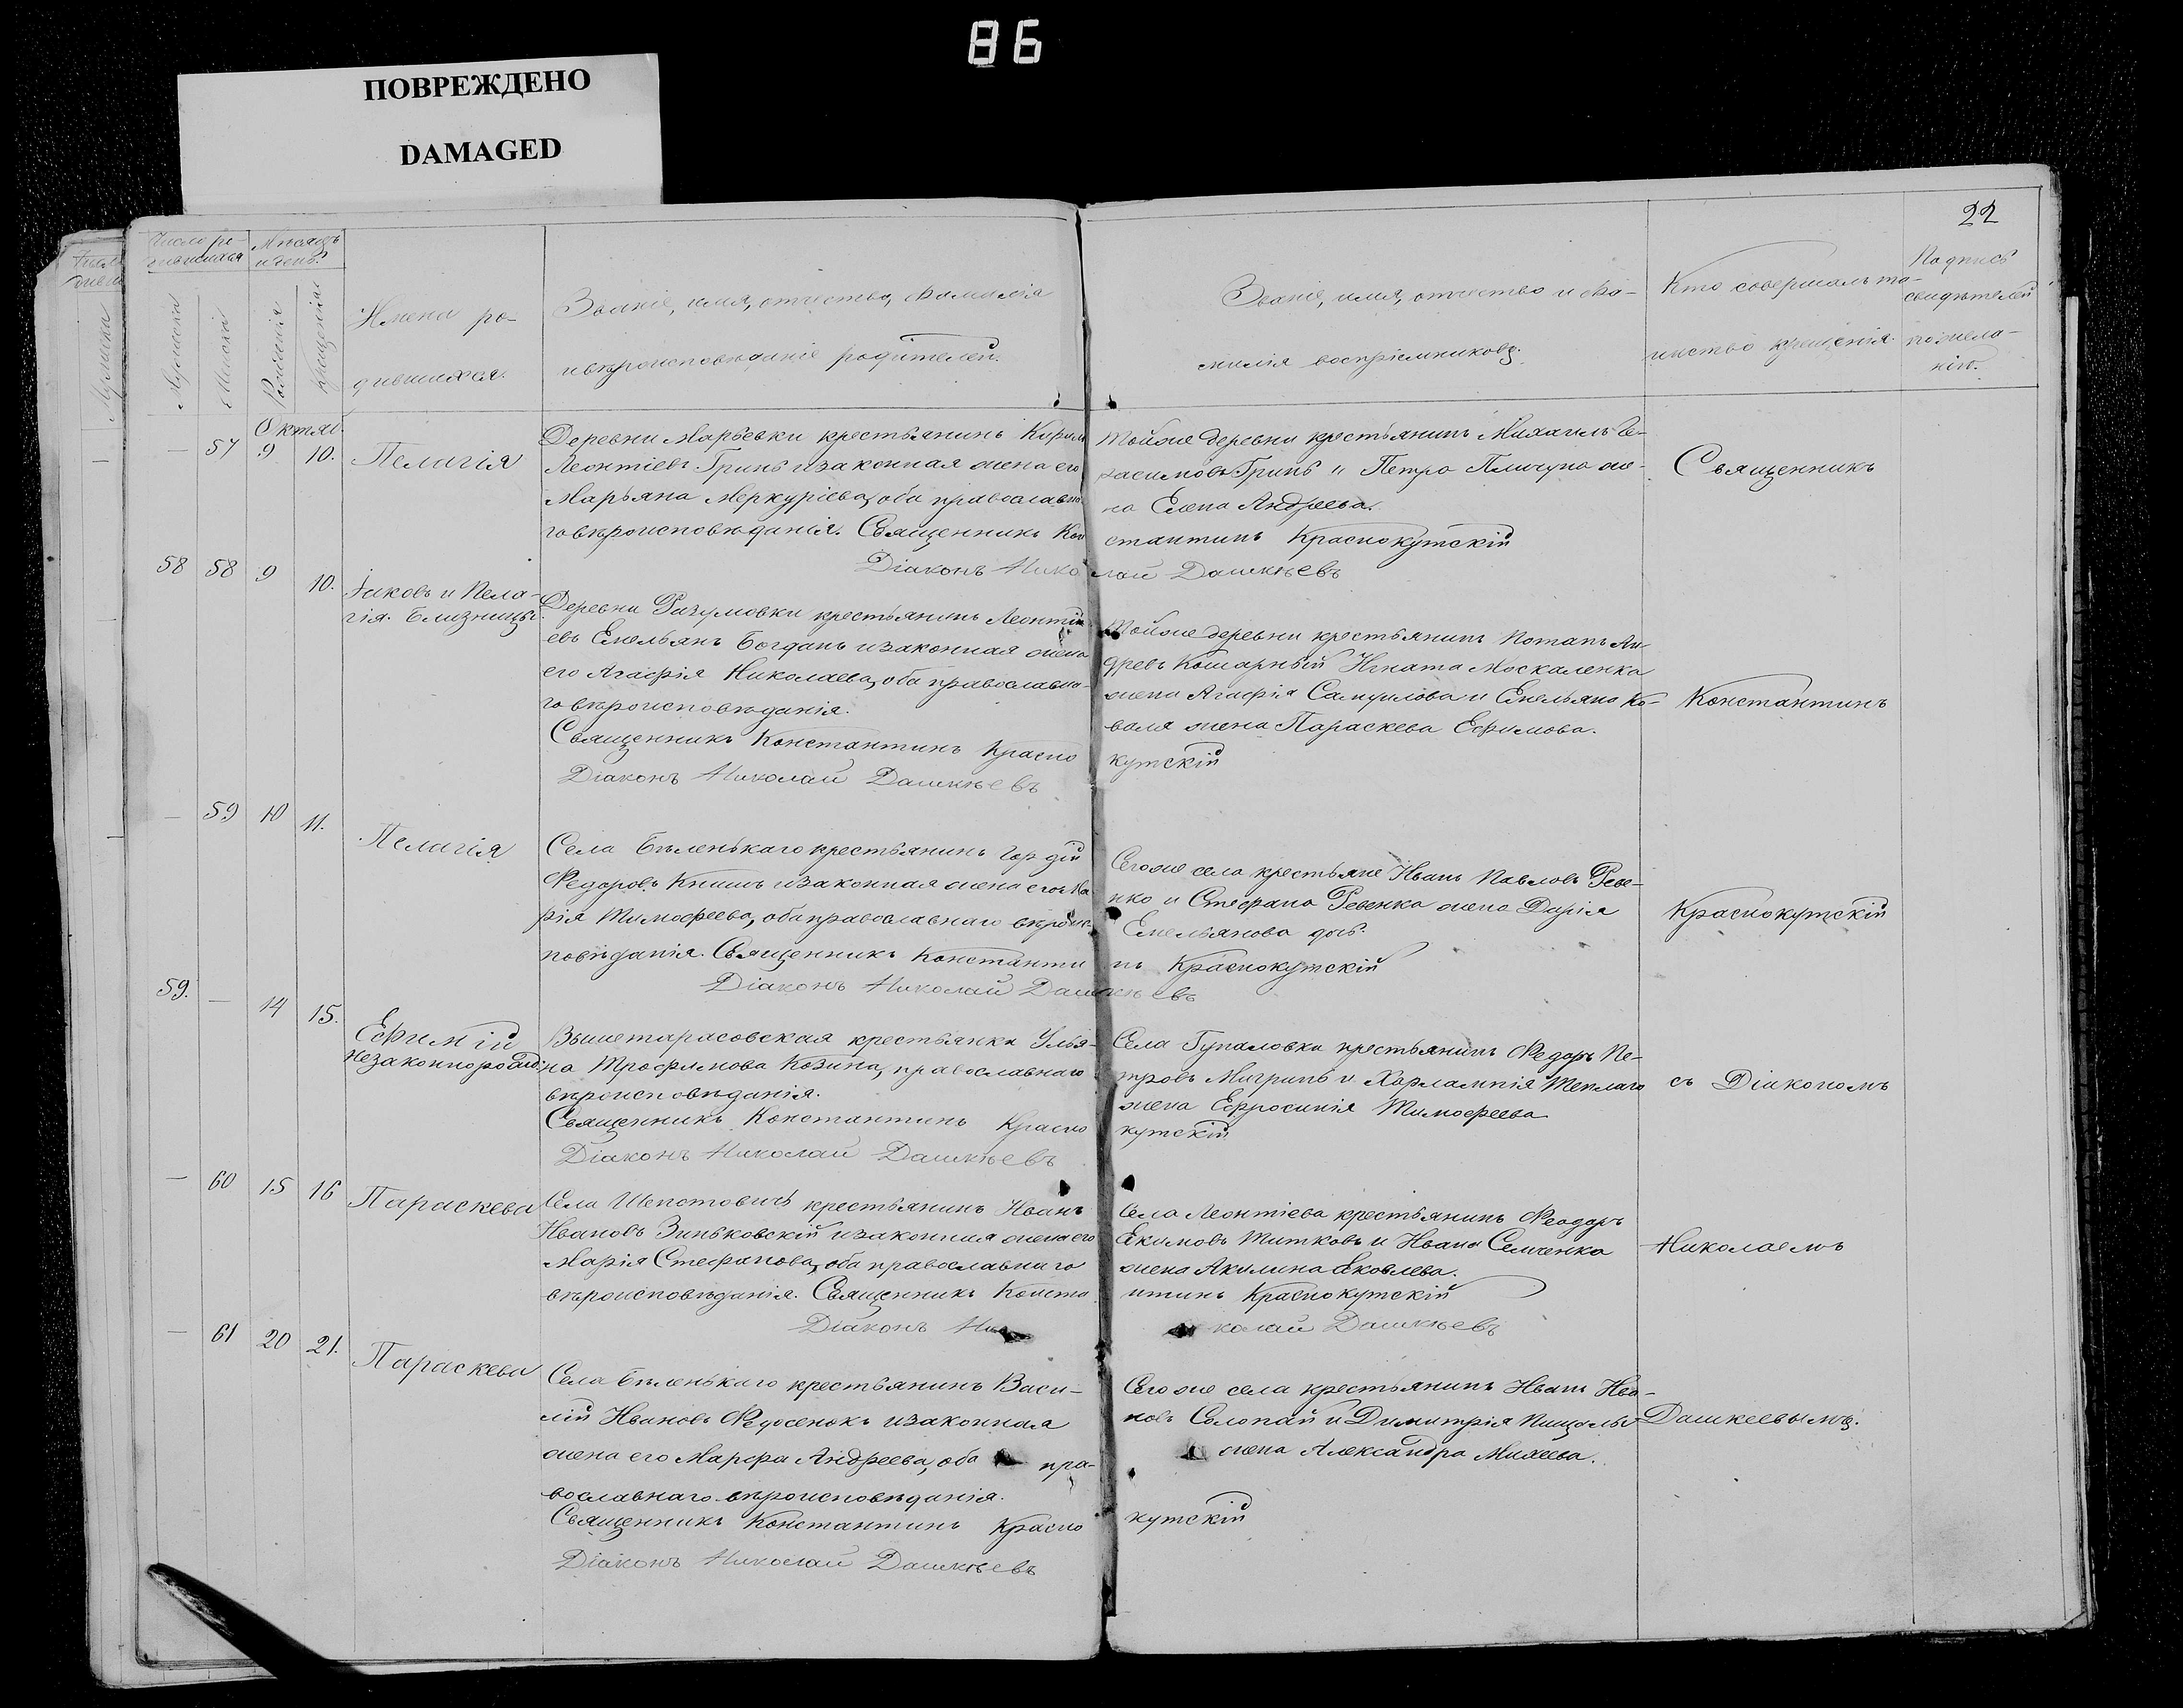 86
ПОВРЕЖДЕНО
DAMAGED
22
Число ро-
дившихся
Мѣсяцъ
и день.
Мужска
Женска
Рожденія
Крещенія
Имена ро-
дившихся.
Званіе, имя, отчество, фамилія
и вѣроисповѣданіе родителей.
Званіе, имя, отчество и фа-
милія воспріемниковъ.
Кто совершалъ та-
инство крещенія.
Подпись
свидѣтелей
по жела-
нію.
Октяб.
— 57 9 10. Пелагія
Деревни Марьевки крестьянинъ Кирилъ
Леонтіевъ Гринь и законная жена его
Марьяна Меркуріева, оба православна-
го вѣроисповѣданія. Священникъ Кон
стантинъ Краснокутскій
Діаконъ Нико лай Дашкѣевъ
Тойже деревни крестьянинъ Михаилъ Ге-
расимовъ Гринь и Петра же-
на Елена Андреева.
Священникъ
58 58 9 10. Іаковъ и Пела-
гія. Близницы.
Деревни Разумовки крестьянинъ Леонтій
евъ Емельянъ Богданъ и законная жена
его Агафія Николаева, оба православна-
го вѣроисповѣданія.
Священникъ Константинъ Красно кутскій
Діаконъ Николай Дашкѣевъ
Тойже деревни крестьянинъ Потапъ Ан-
древъ Кошарный Игната Москаленка
жена Агафія Самуилова и Емельяна Ко-
валя жена Параскева Ефимова.
Константинъ
— 59 10 11. Пелагія
Села Бѣленькаго крестьянинъ Гордій
Федоровъ Книшъ и законная жена его Ма
рія Тимофеева, оба православнаго вѣроис-
повѣданія. Священникъ Константи нъ Краснокутскій
Діаконъ Николай Дашкѣевъ
Сегоже села крестьяне Иванъ Павловъ Реве-
нко и Стефана Ревенка жена Дарія
Емельянова дочь.
Краснокутскій
59. — 14 15. Ефимій
незаконнорожд:
Вышетарасовская крестьянка Улья-
на Трофимова Козина, православнаго
вѣроисповѣданія.
Священникъ Константинъ Красно кутскій
Діаконъ Николай Дашкѣевъ
Села Гупаловки крестьянинъ Федоръ Пе-
тровъ Мигринъ и Харлампія Теплаго
жена Ефросинія Тимофеева
съ Діакономъ
— 60 15 16 Параскева
Села крестьянинъ Иванъ
Ивановъ Зиньковскій и законная жена его
Марія Стефанова, оба православнаго
вѣроисповѣданія. Священникъ Конста нтинъ Краснокутскій
Діаконъ Ни колай Дашкѣевъ
Села Леонтіева крестьянинъ Феодоръ
Екимовъ Титковъ и Ивана Семченка
жена Акилина Яковлева.
Николаемъ
— 61 20 21. Параскева
Села Бѣленькаго крестьянинъ Васи-
лій Ивановъ Федосенокъ и законная
жена его Марфа Андреева, оба пра-
вославнаго вѣроисповѣданія.
Священникъ Константинъ Красно кутскій
Діаконъ Николай Дашкѣевъ
Сегоже села крестьянинъ Иванъ Ива-
новъ Солопай и Димитрія
жена Александра Михеева.
Дашкеевымъ.